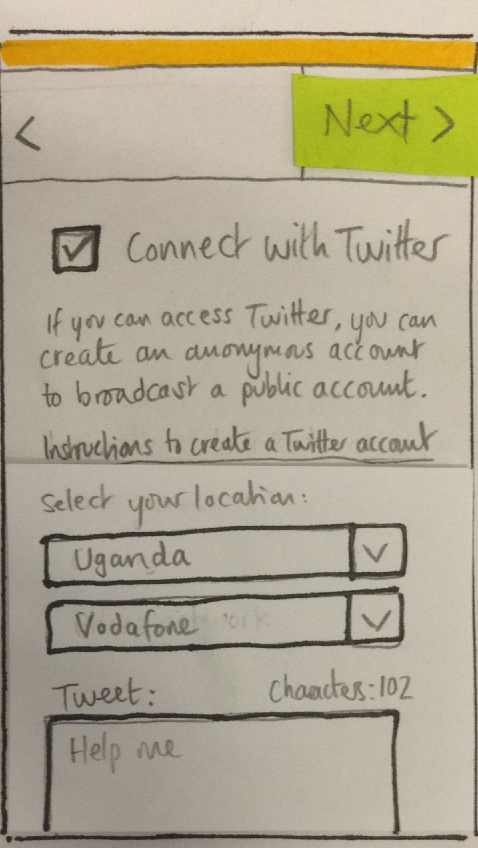 <
Next >
Connect with Twitter
If you can access Twitter, you can
create an anonymous account
to broadcast a public account.
Instructions to create a Twitter account
Select your location:
Uganda
Vodafone
Tweet: Characters:102
Help me